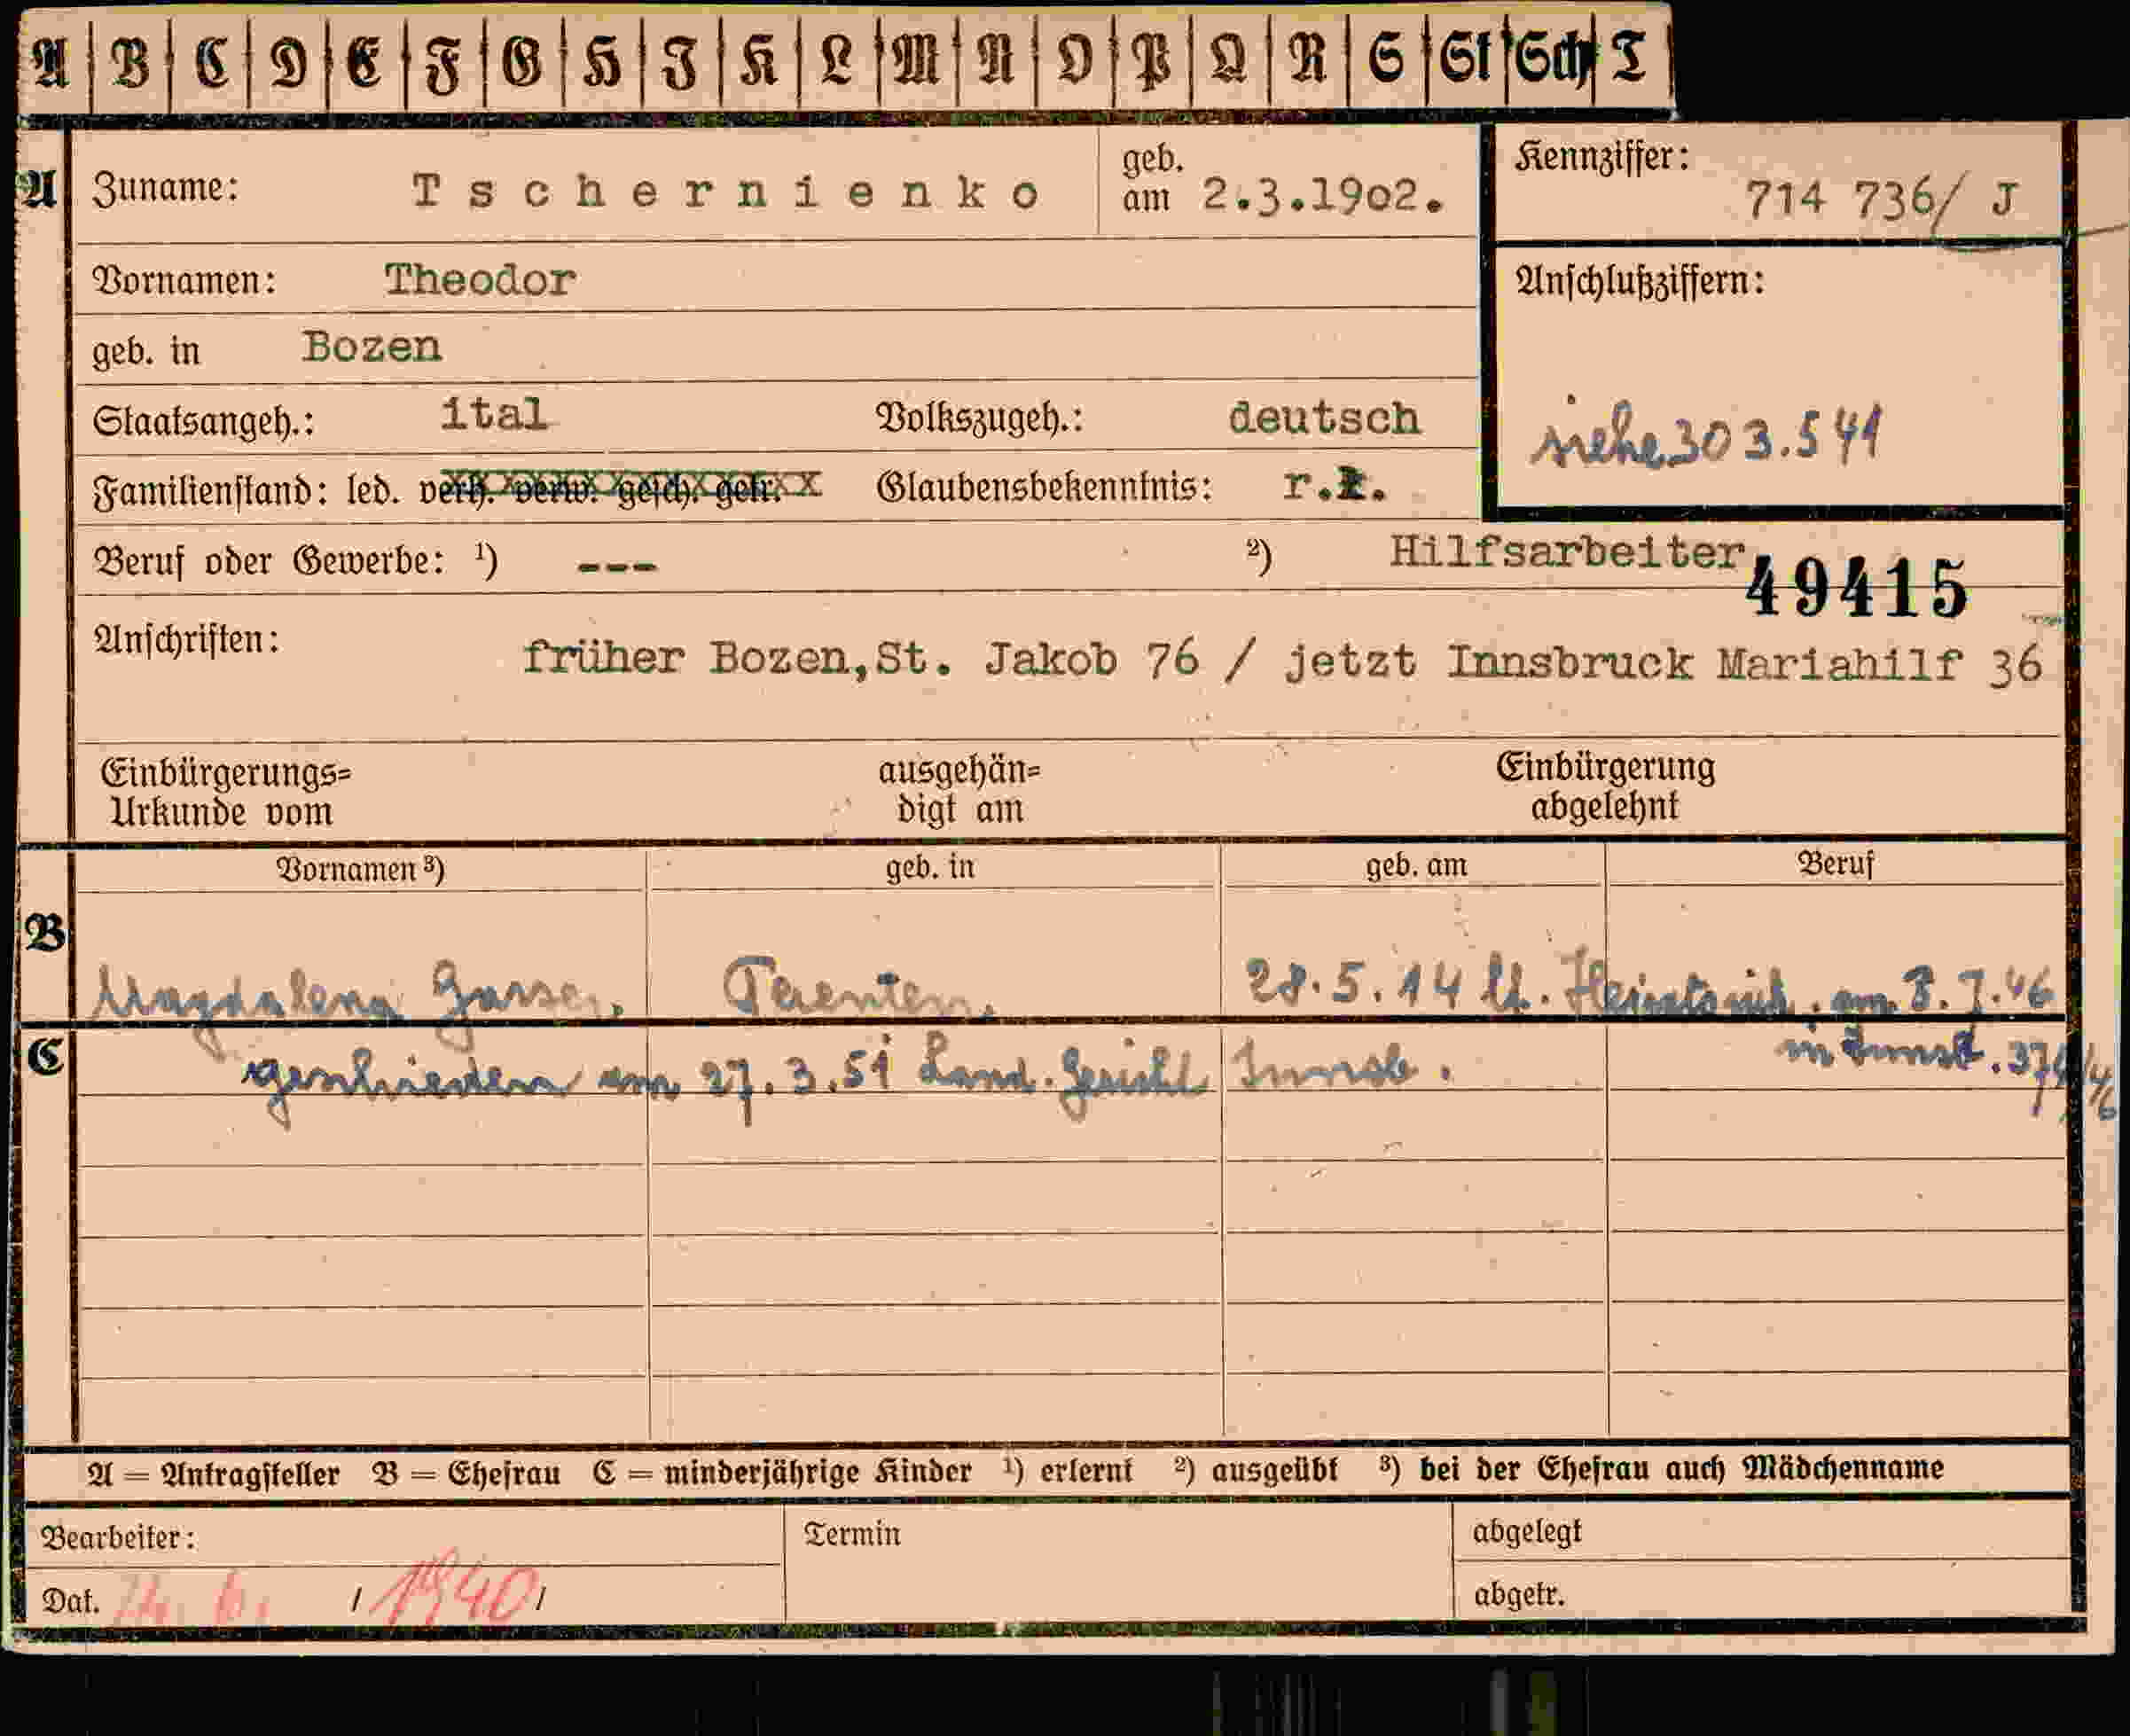 A B C D E F G H I K L M N O P Q R S St Sch T
A Zuname: Tschernienko geb. am 2.3.1902.
Kennziffer: 714 736/ J
Vornamen: Theodor
Anschlußziffern:
geb. in Bozen
Staatsangeh.: ital Volkszugeh.: deutsch
siehe 303.541
Familienstand: led. verh. verw. gesch. getr. Glaubensbekenntnis: r.k.
Beruf oder Gewerbe: ¹) --- ²) Hilfsarbeiter
49415
Anschriften: früher Bozen,St. Jakob 76 / jetzt Innsbruck Mariahilf 36
Einbürgerungs= ausgehän= Einbürgerung
Urkunde vom digt am abgelehnt
Vornamen ³) geb. in geb. am Beruf
B
Magdalena Gasser. Terenten. 28.5.14 lt. am 8.7.46
C in Innsb. 374/46
geschieden am 27.3.51 Land. Gericht Innsb.
A = Antragsteller B = Ehefrau C = minderjährige Kinder ¹) erlernt ²) ausgeübt ³) bei der Ehefrau auch Mädchenname
Bearbeiter: Termin abgelegt
Dat. / 1940 / abgetr.